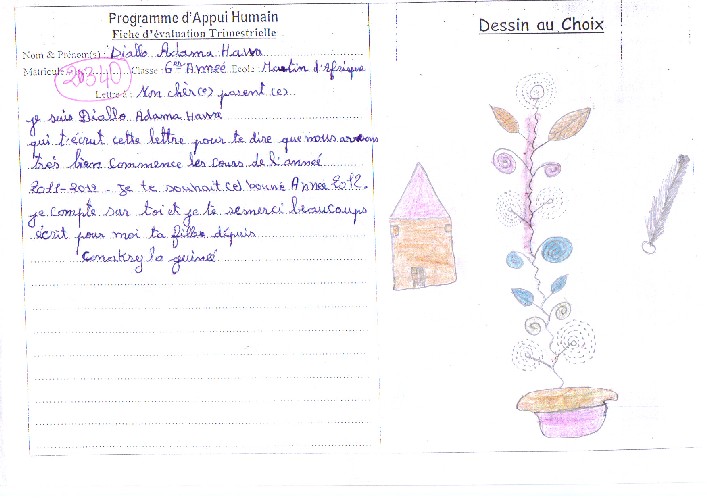 Programme d'Appui Humain
Fiche d'évaluation Trimestrielle
Nom & Prénom(s) : Diallo Adama Hawa
Matricule 20340 Classe : 6ème Année Ecole : Martin d'Afrique
Lettre à : Mon chèr(e) parent (es
je suis Diallo Adama Hawa
qui t'écrut cette lettre pour te dire que nous avons
très bien commence les cours de l'anneé
2011-2012 - Je te souhait (e) bonne Année 2012.
je compte sur toi et je te remerci beaucoups
écrit pour moi ta fille dépuis
Conakry la guineé
Dessin au Choix